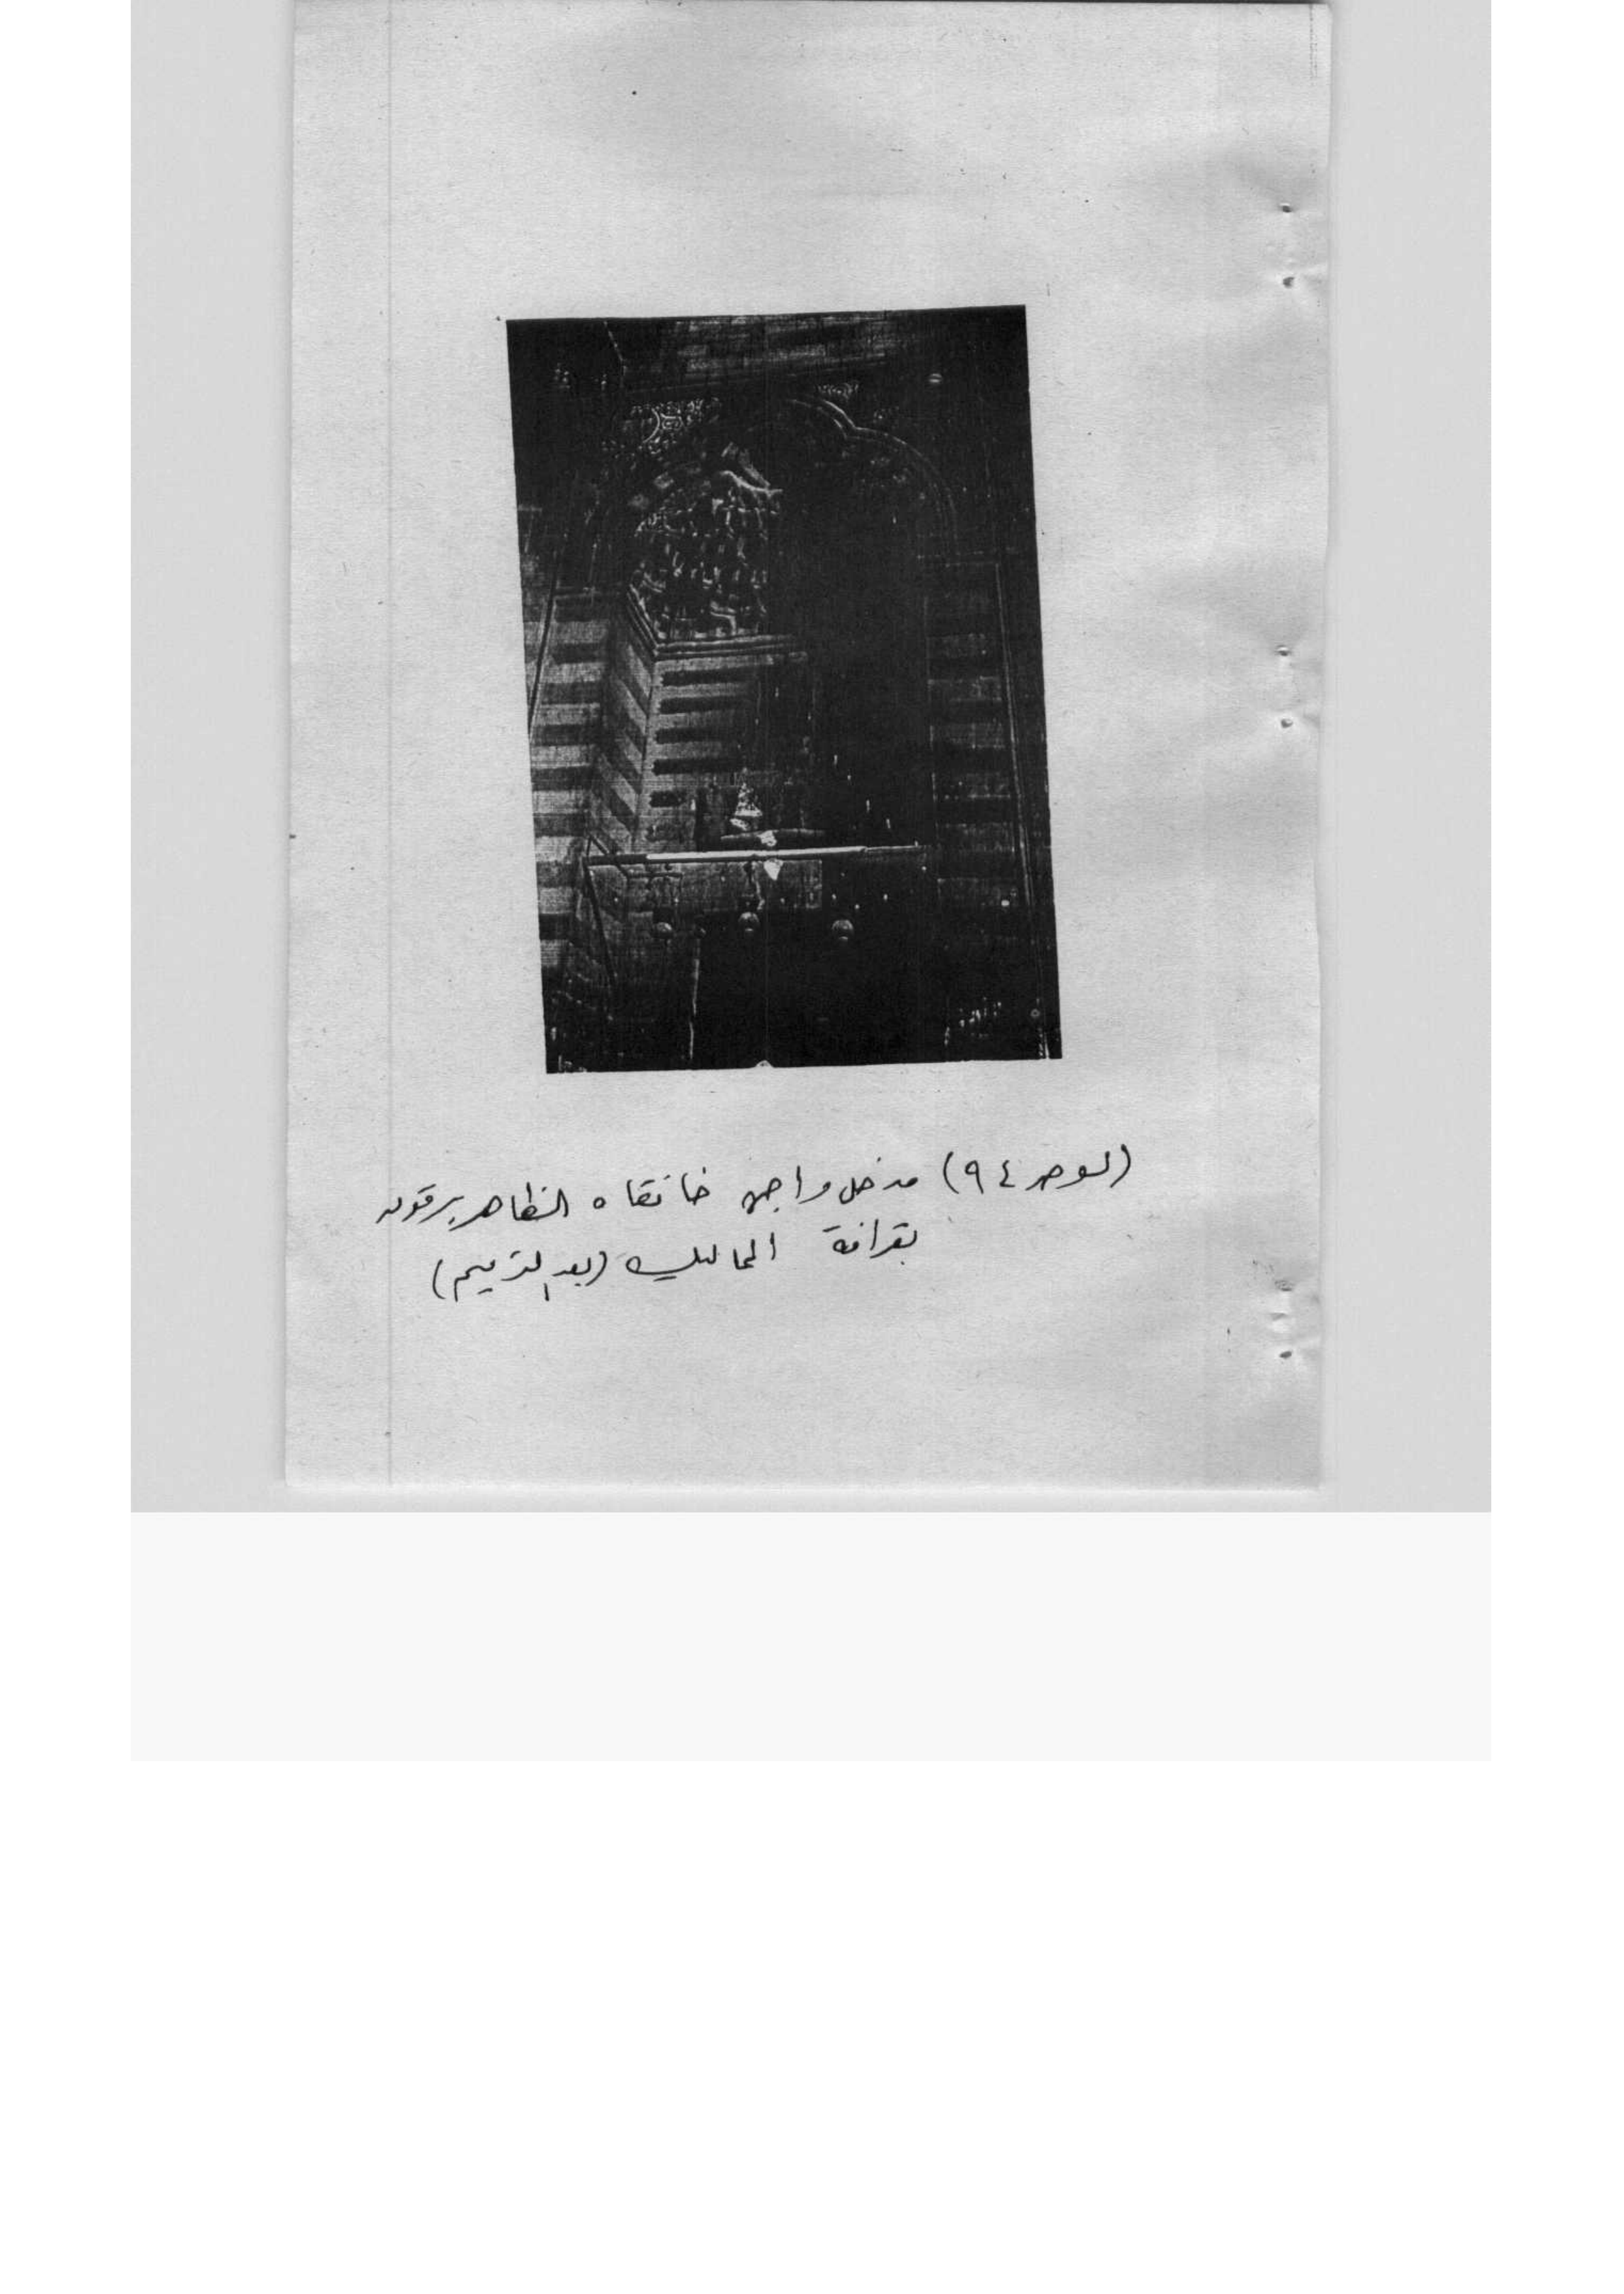 (لوحة ٩٤) مدخل واجهة خانقاه الظاهر برقوق
بقرافة المماليك (بعد الترميم)